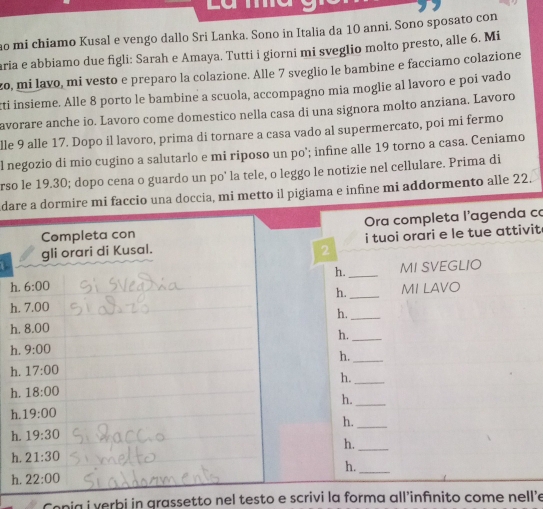 mi chiamo Kusal e vengo dallo Sri Lanka. Sono in Italia da 10 anni. Sono sposato con
e abbiamo due figli: Sarah e Amaya. Tutti i giorni mi sveglio molto presto, alle 6. Mi
zo, mi lavo, mi vesto e preparo la colazione. Alle 7 sveglio le bambine e facciamo colazione
tti insieme. Alle 8 porto le bambine a scuola, accompagno mia moglie al lavoro e poi vado
avorare anche io. Lavoro come domestico nella casa di una signora molto anziana. Lavoro
lle 9 alle 17. Dopo il lavoro, prima di tornare a casa vado al supermercato, poi mi fermo
l negozio di mio cugino a salutarlo e mi riposo un po'; infine alle 19 torno a casa. Ceniamo
rso le 19.30; dopo cena o guardo un po' la tele, o leggo le notizie nel cellulare. Prima di
dare a dormire mi faccio una doccia, mi metto il pigiama e infine mi addormento alle 22.
Completa con
gli orari di Kusal.
h. 6:00 si sveglia
h. 7.00 si alzo
h. 8.00
h. 9:00
h. 17:00
h. 18:00
h.19:00
h. 19:30 si faccio
h. 21:30 si metto
h. 22:00 si addorments
2
Ora completa l'agenda co
i tuoi orari e le tue attivit
h. ____ MI SVEGLIO
h. ____ MI LAVO
h. ____
h. ____
h. ____
h. ____
h. ____
h. ____
h. ____
h. ____
Copia i verbi in grassetto nel testo e scrivi la forma all'infinito come nell'e